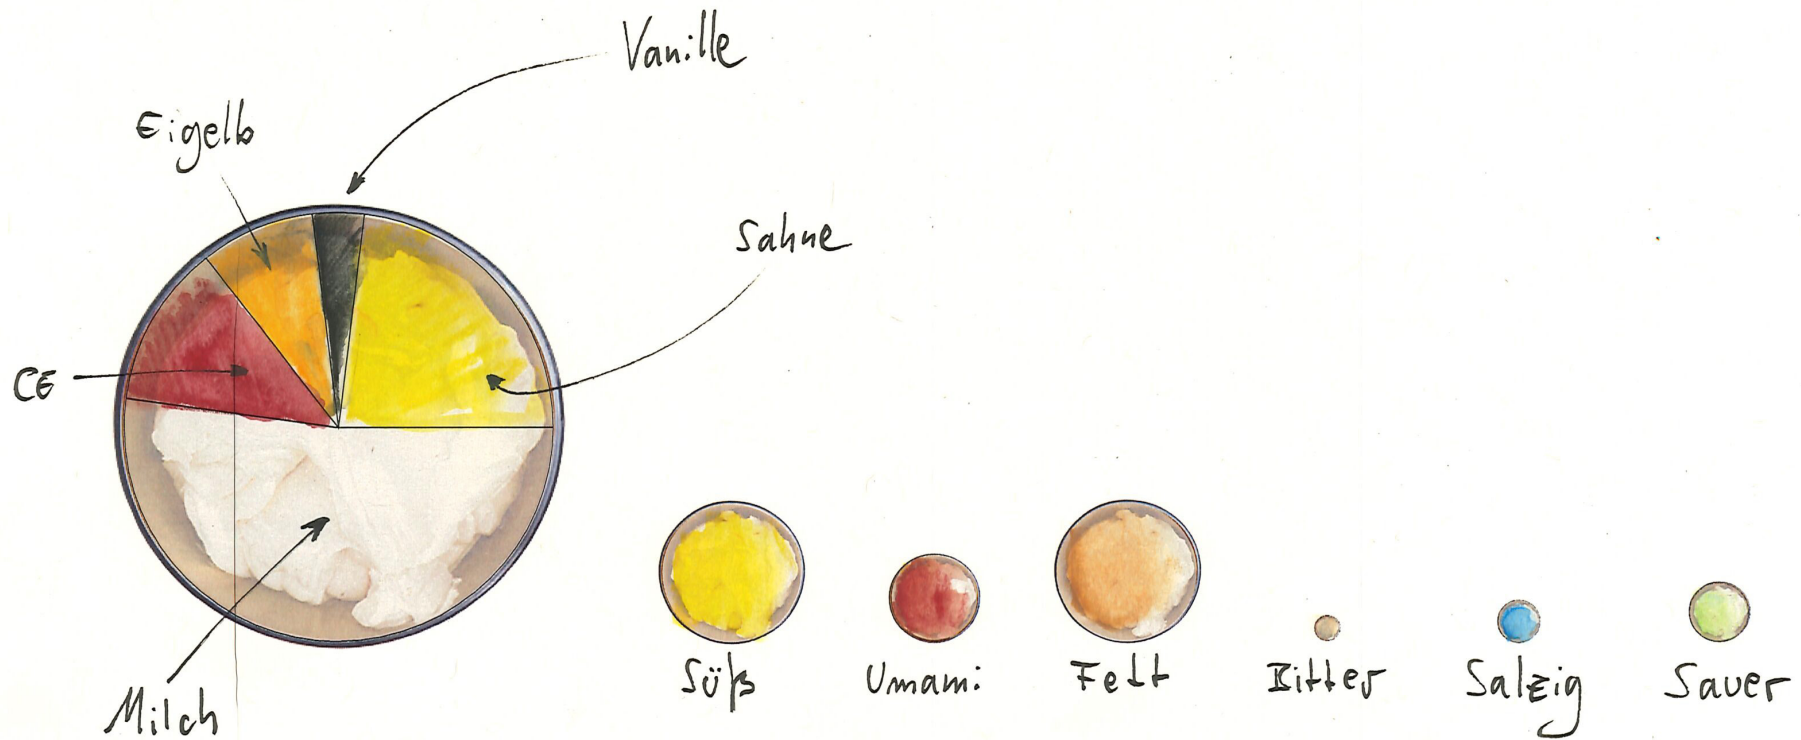 Vanille
Eigelb
Sahne
CE
Milch
Süß
Umami
Fett
Bitter
Salzig
Sauer